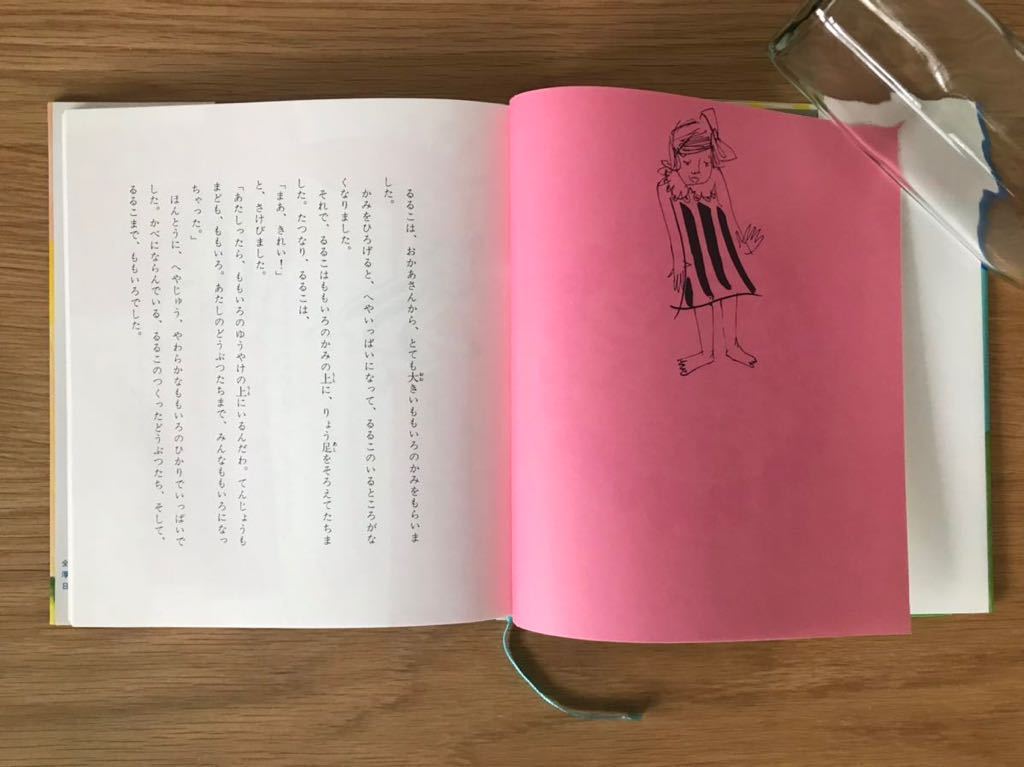 るるこは、おかあさんから、とても大きいももいろのかみをもらいま
した。
かみをひろげると、へやいっぱいになって、るるこのいるところがな
くなりました。
それで、るるこはももいろのかみの上に、りょう足をそろえてたちま
した。たつなり、るるこは、
「まあ、きれい！」
と、さけびました。
「あたしったら、ももいろのゆうやけの上にいるんだわ。てんじょうも
まども、ももいろ。あたしのどうぶつたちまで、みんなももいろになっ
ちゃった。」
ほんとうに、へやじゅう、やわらかなももいろのひかりでいっぱいで
した。かべにならんでいる、るるこのつくったどうぶつたち、そして、
るるこまで、ももいろでした。